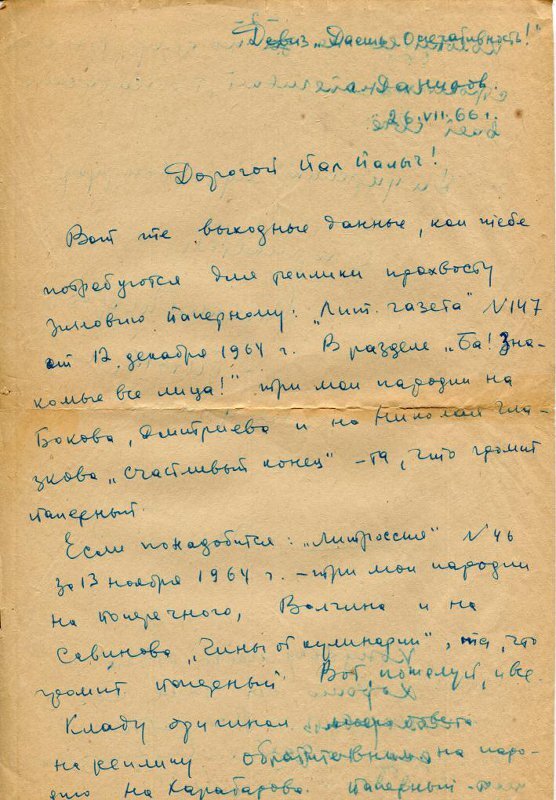 Девиз „Даешь оперативность!"
26.VII.66 г.
Дорогой Пал Палыч!
Вот те выходные данные, кои тебе
потребуются для реплики прохвосту
Зиновию Паперному: „Лит. газета" N 147
от 12 декабря 1964 г. В разделе „Ба! Зна-
комые все лица!" три мои пародии на
Бокова, Дмитриева и на Николая Гла-
зкова „Счастливый конец" – та, что громит
Паперный.
Если понадобится: „Литроссия" N 46
за 13 ноября 1964 г. – три мои пародии
на Поперечного, Волгина и на
Савинова „Чины от кулинарии", та, что
громит Паперный. Вот, пожалуй, и все.
Кладу оригинал
на реплику. обрати внимание на паро-
дию на Карабарова. Паперный –